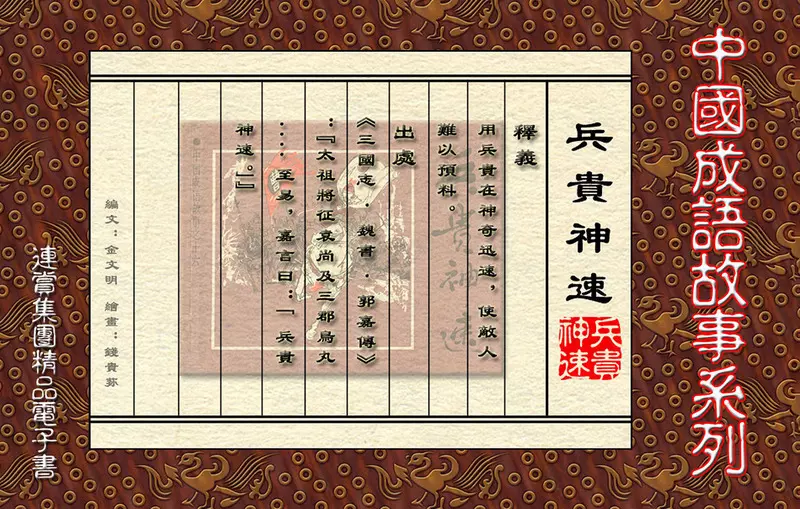 中國成語故事系列
兵貴神速
兵貴
神速
釋義
用兵貴在神奇迅速，使敵人
難以預料。
出處
《三國志．魏書．郭嘉傳》
：『太祖將征袁尚及三郡烏丸
‥‥至易，嘉言曰：「兵貴
神速。」』
編文：金文明　繪畫：錢貴蓀
連賞集團精品電子書